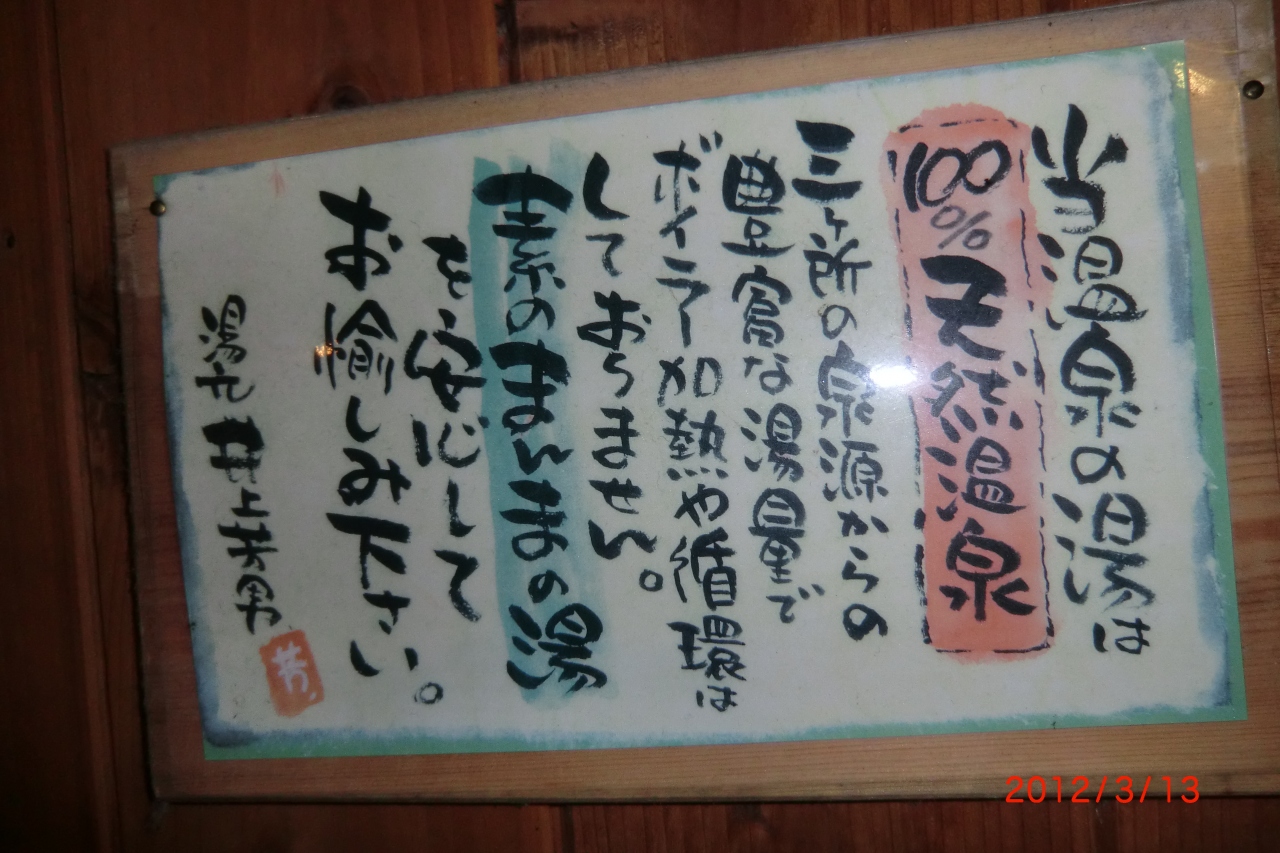 当温泉の湯は
100%天然温泉
三ヶ所の泉源からの
豊富な湯量で
ボイラー加熱や循環は
しておらません。
素のまんまの湯
を安心して
お愉しみ下さい。
湯元 井上芳男
芳
2012/3/13